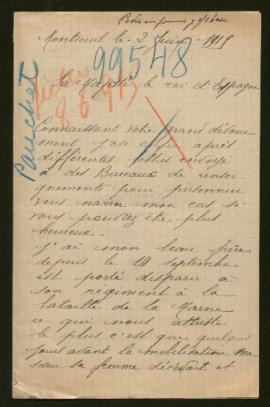 Montreuil le 2 Juin 1915
99548
Pauchet
8-6-915
Sa Majesté le roi d'Espagne
Connaissant votre grand dévoue
ment j'ose après
différentes
à des Bureaux de rensei
gnements pour prisonnier
vous narrer mon cas si
vous pouvez être plus
heureux.
j'ai mon beau frère
depuis le 14 Septembre
est porté disparu a
son régiment à la
bataille de la Marne
ce qui nous attriste
le plus c'est que quelques
jours avant la mobilisation ma
sœur sa femme décédait et